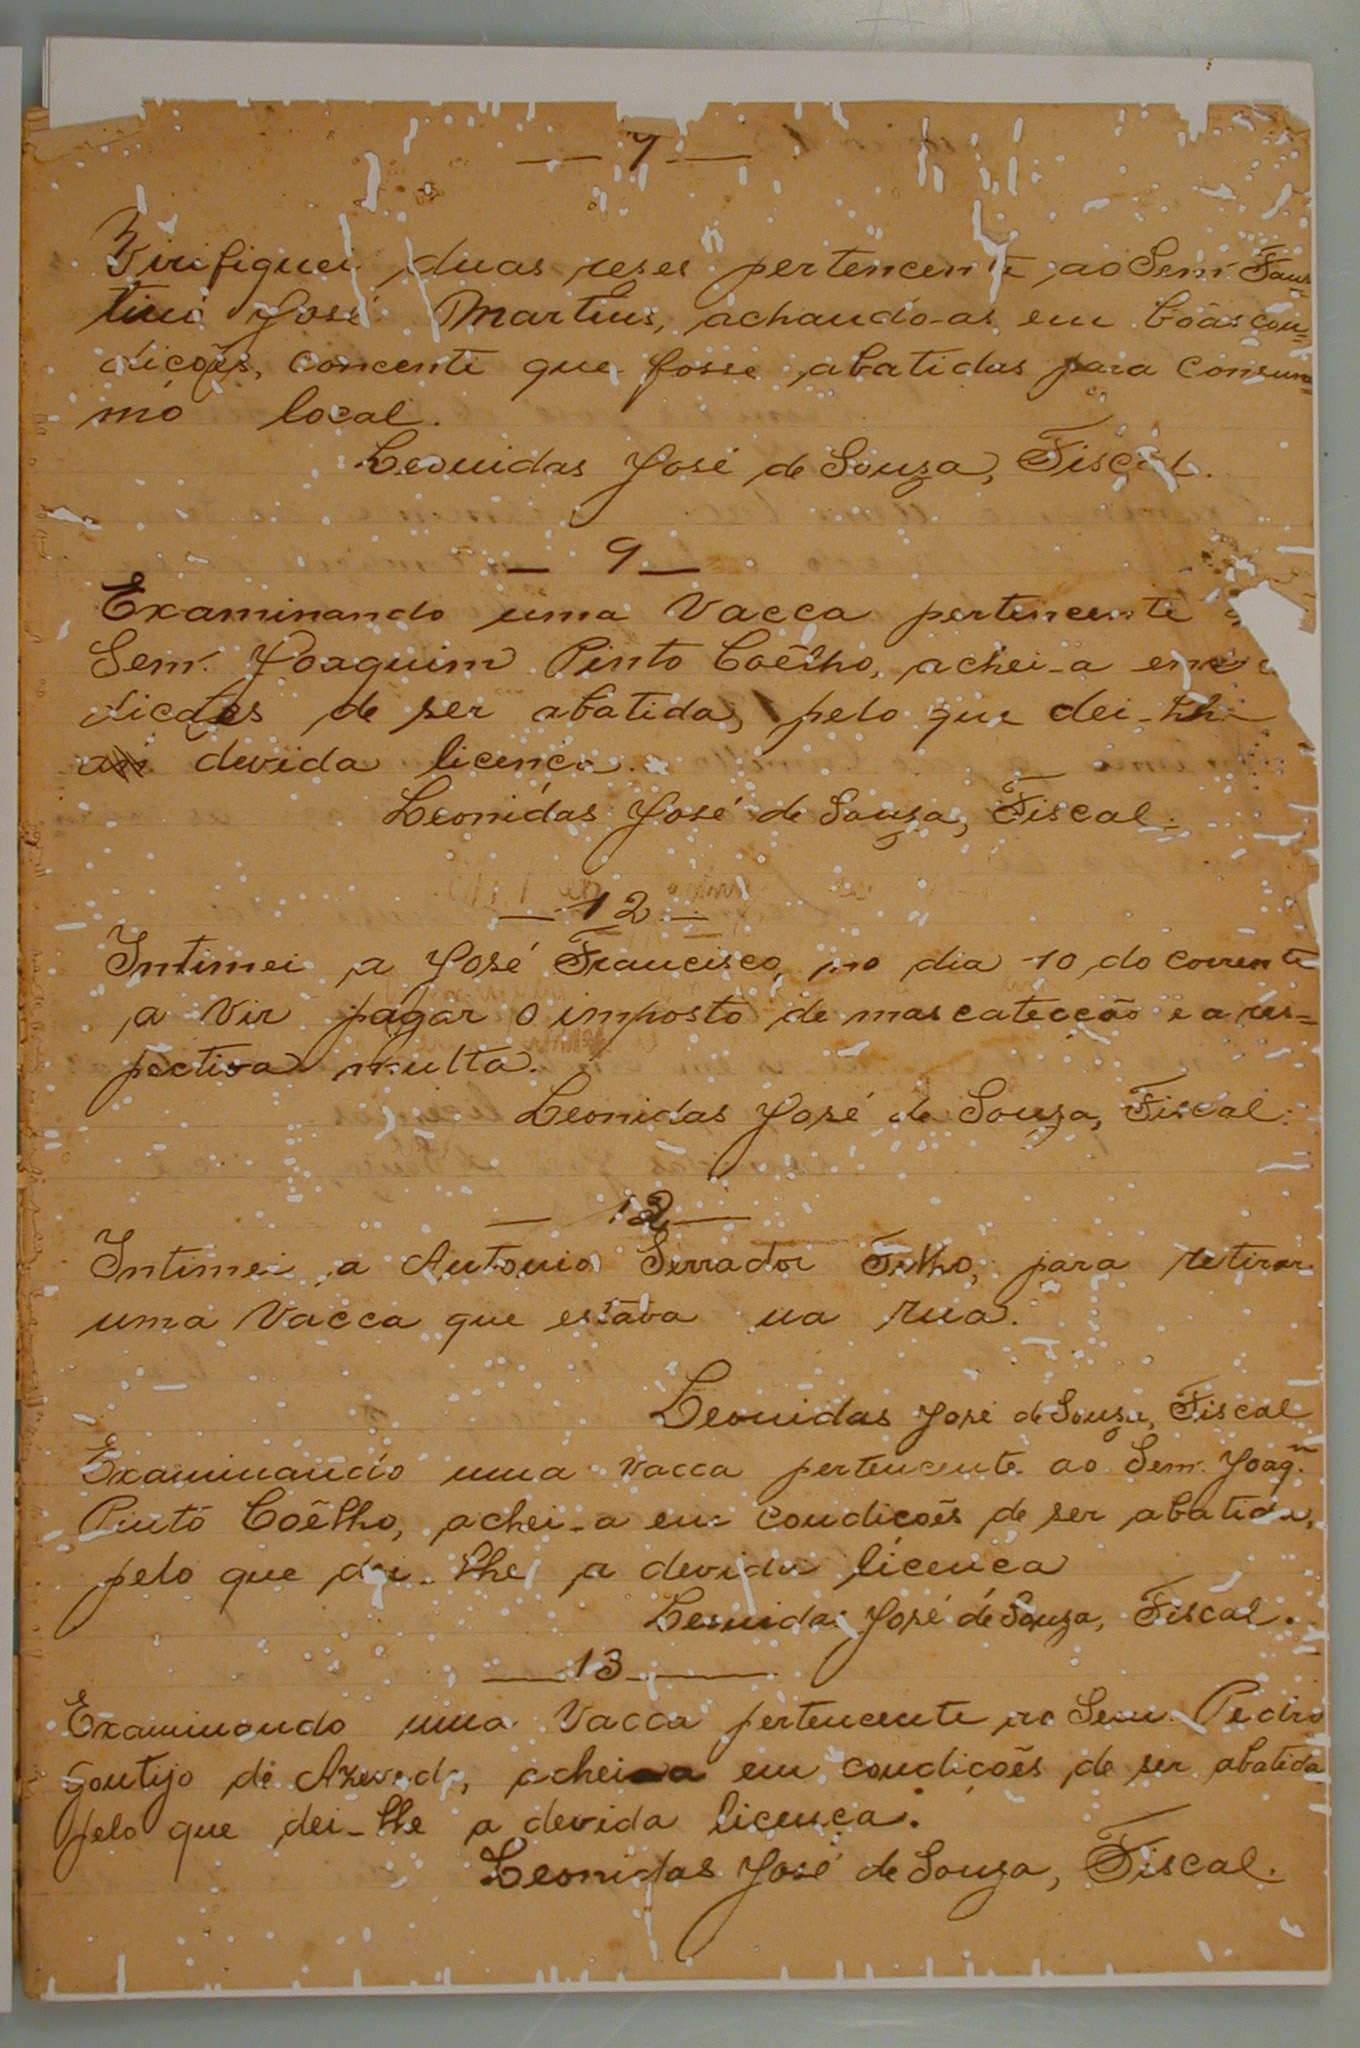 — 7 —
Virifiquei duas reses pertencente ao Senr. Faus=
tino José Martins, achando-as em bôas con=
dições, concenti que fosse abatidas para consum=
mo local.
Leonidas José de Souza, Fiscal.
— 9 —
Examinando uma Vacca pertencente
Senr. Joaquim Pinto Coêlho, achei-a em
dições de ser abatida, pelo que dei-lhe
devida licença.
Leonidas José de Souza, Fiscal.
— 12 —
Intimei a José Francisco, no dia 10 do corrente
a vir pagar o imposto de mascatecção e a res=
pectiva multa.
Leonidas José de Souza, Fiscal.
— 12 —
Intimei a Antonio Serrador Filho, para retirar
uma Vacca que estava na rua.
Leonidas José de Souza, Fiscal
Examinando uma vacca pertencente ao Senr. Joaqm.
Pinto Coêlho, achei-a em condições de ser abatida,
pelo que dei-lhe a devida licença
Leonidas José de Souza, Fiscal.
— 13 —
Examinando uma Vacca pertencente ao Senr. Pedro
Gontijo de Azevedo, achei-a em condições de ser abatida
pelo que dei-lhe a devida licença.
Leonidas José de Souza, Fiscal.